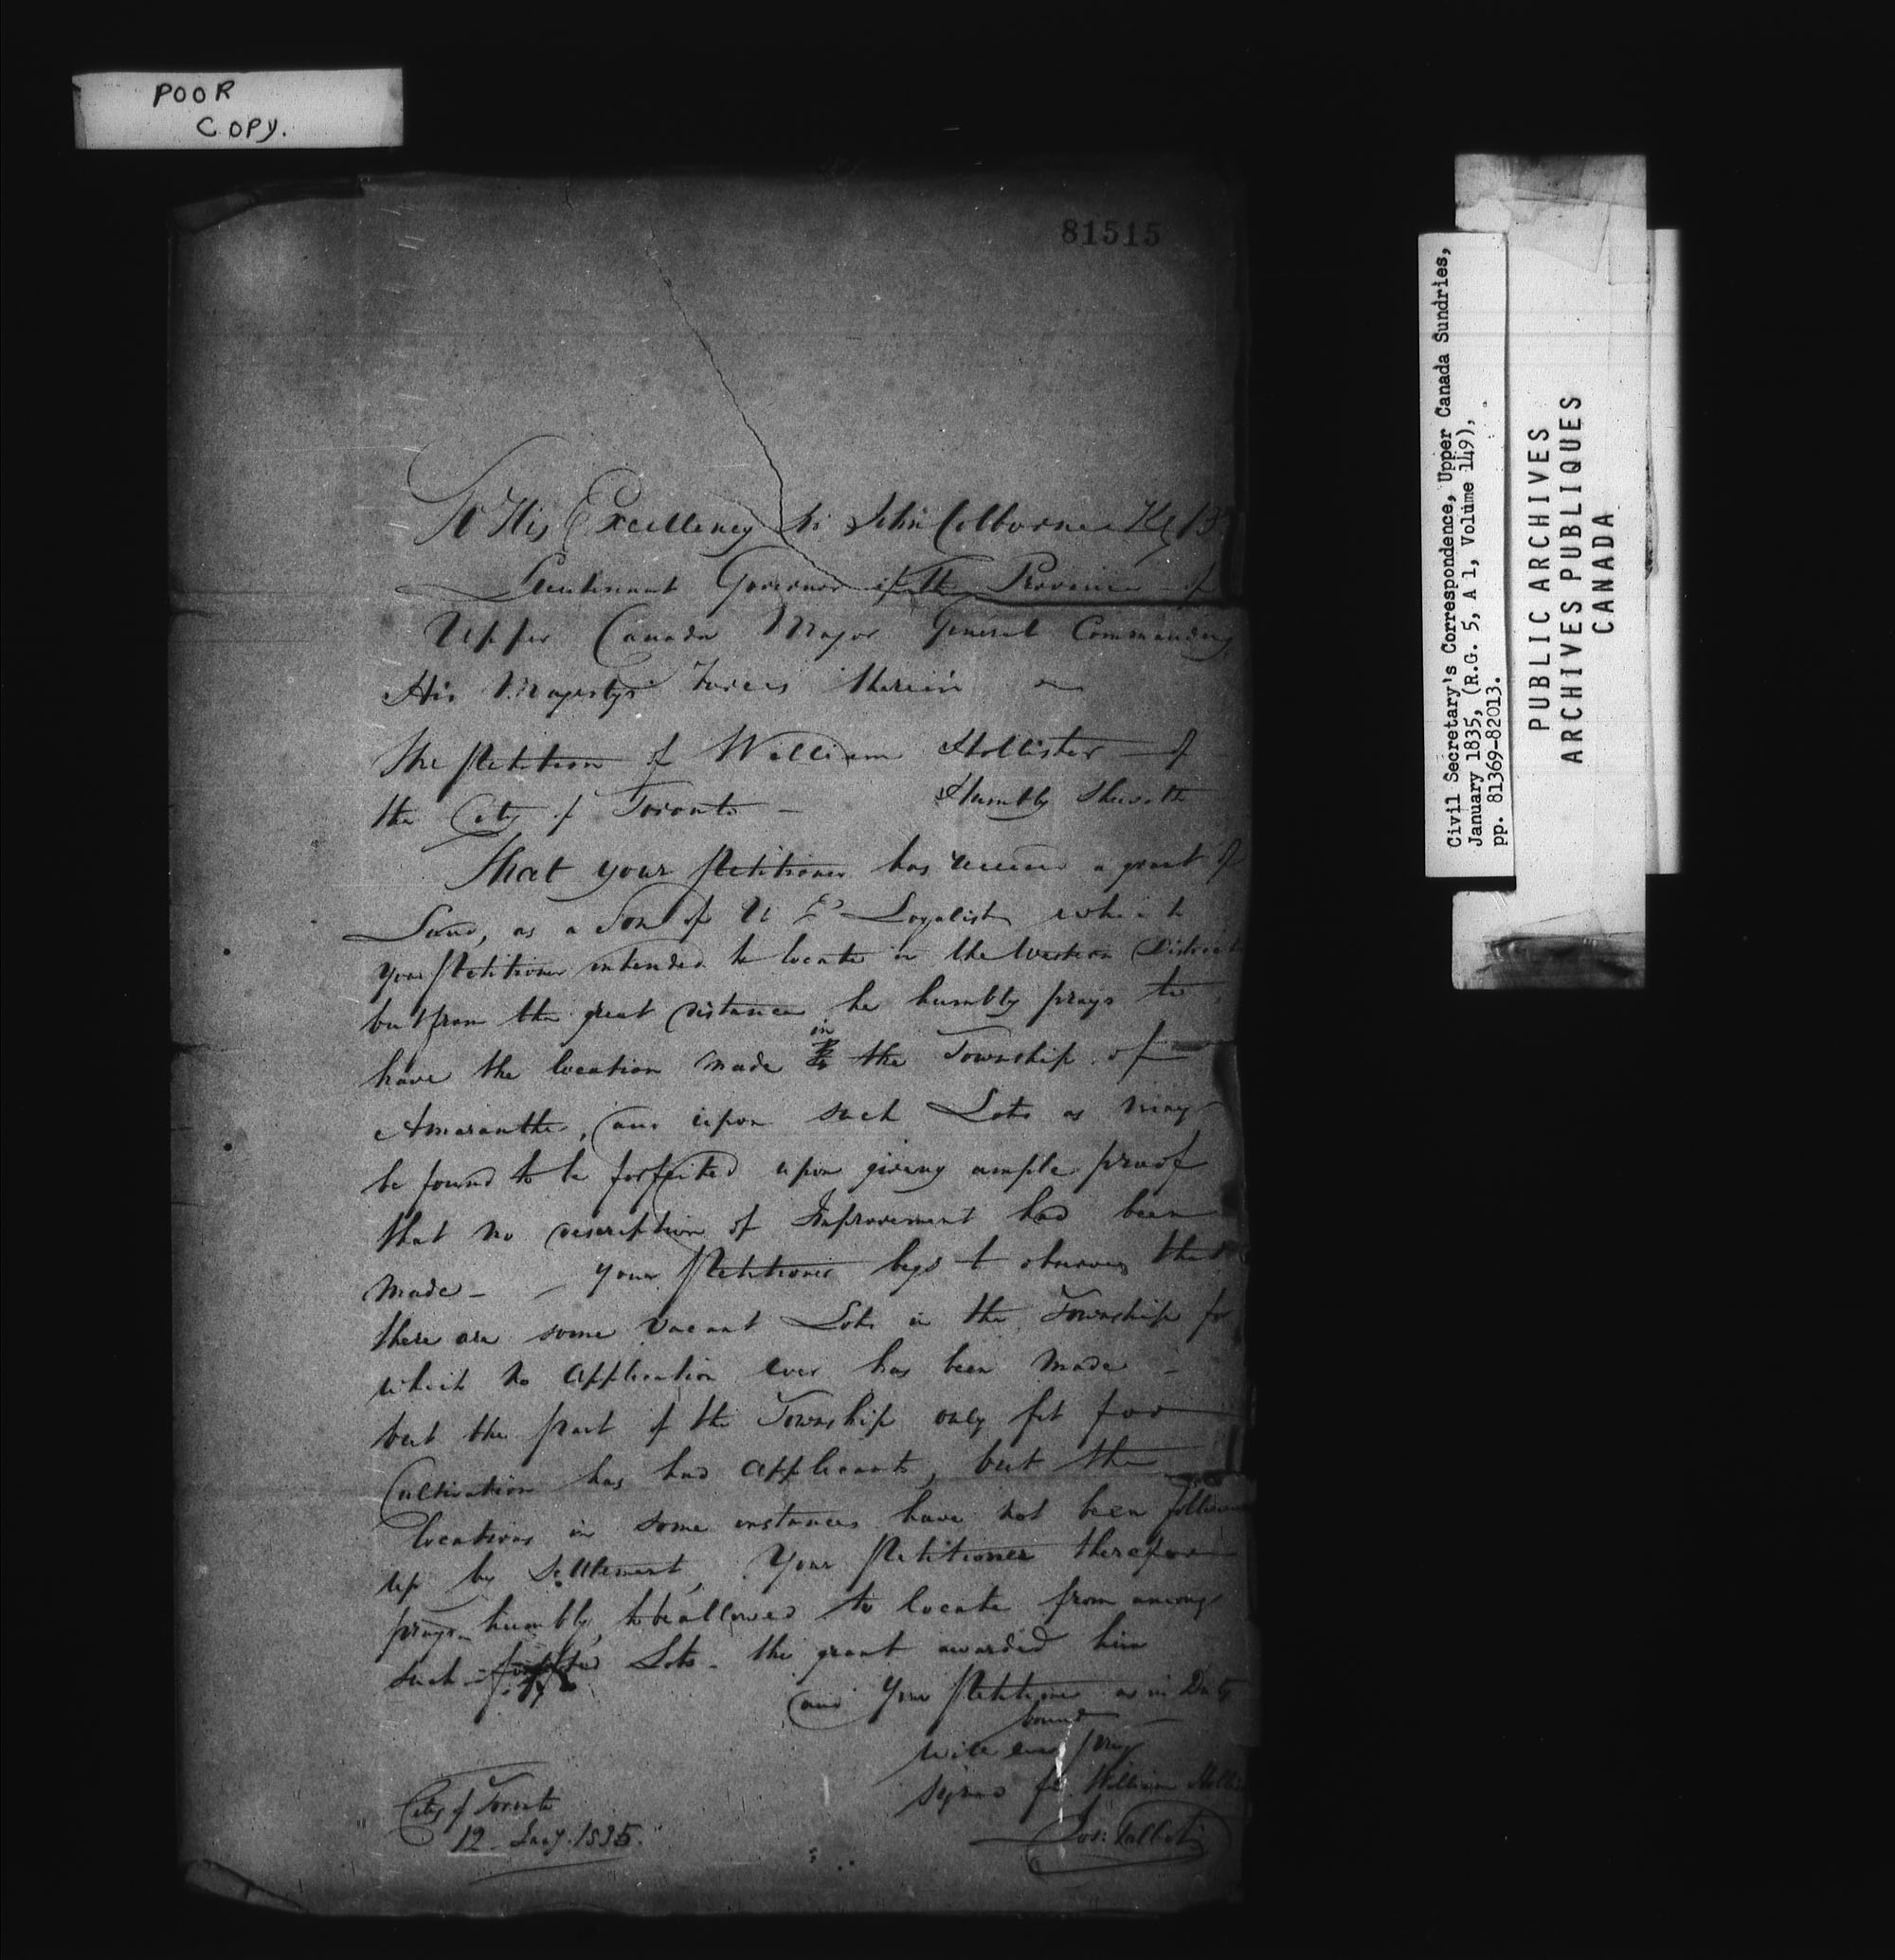 POOR
COPY.
81515
To His Excellency Sir John Colborne K C B
Lieutenant Governor of the Province of
Upper Canada Major General Commanding
His Majestys Forces therein
The Petition of William Hollister of
the City of Toronto — Humbly Sheweth
That your Petitioner has received a grant of
Land, as a Son of U E Loyalist which
your Petitioner intended to locate in the Western District
but from the great distance he humbly prays to
have the location made in the Township of
Amaranth, and upon such Lots as may
be found to be forfeited upon giving ample proof
that no description of Improvement had been
made — Your Petitioner begs to observe that
there are some vacant Lots in the Township for
which no application ever has been made —
but the part of the Township only fit for
Cultivation has had applicants, but the
locations in some instances have not been followed
up by settlement, Your Petitioner therefore
prays humbly, to be allowed to locate from among
such Lots – the grant awarded him
and Your Petitioner as in Duty
bound
will ever pray
signed for William
Jos: Talbot
City of Toronto
12 Jany. 1835.
Civil Secretary's Correspondence, Upper Canada Sundries,
January 1835, (R.G. 5, A 1, Volume 149),
pp. 81369-82013.
PUBLIC ARCHIVES
ARCHIVES PUBLIQUES
CANADA